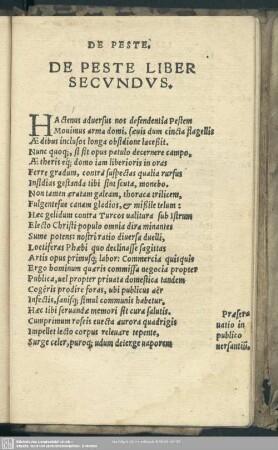 DE PESTE.
DE PESTE LIBER
SECVNDVS.
HActenus aduersus nos defendentia Pestem
Mouimus arma domi, sæuis dum cincta flagellis
Ædibus inclusos longa obsidione lacessit.
Nunc quoq;, si sit opus patulo decernere campo,
Ætheris eq; domo iam liberioris in oras
Ferre gradum, contra suspectas qualia rursus
Insidias gestanda tibi sint scuta, monebo.
Non tamen æratam galeam, thoraca trilicem,
Fulgentesue canam gladios, & missile telum:
Hæc gelidum contra Turcos ualitura sub Istrum
Electo Christi populo omnia dira minantes
Sume potens nostri ratio diuersa duelli,
Loetiferas Phœbi quo declinasse sagittas
Artis opus primusq; labor: Commercia quisquis
Ergo hominum quæris commissa negocia propter
Publica, uel propter priuata domestica tandem
Cogeris prodire foras, ubi publicus aër
Infectis, sanisq; simul communis habetur,
Hæc tibi seruandæ memori sit cura salutis.
Cumprimum roseis euecta aurora quadrigis
Impellet lecto corpus releuare repente,
Surge celer, puroq; udum deterge uaporem
Præser
uatio in
publico
uersantiũ.